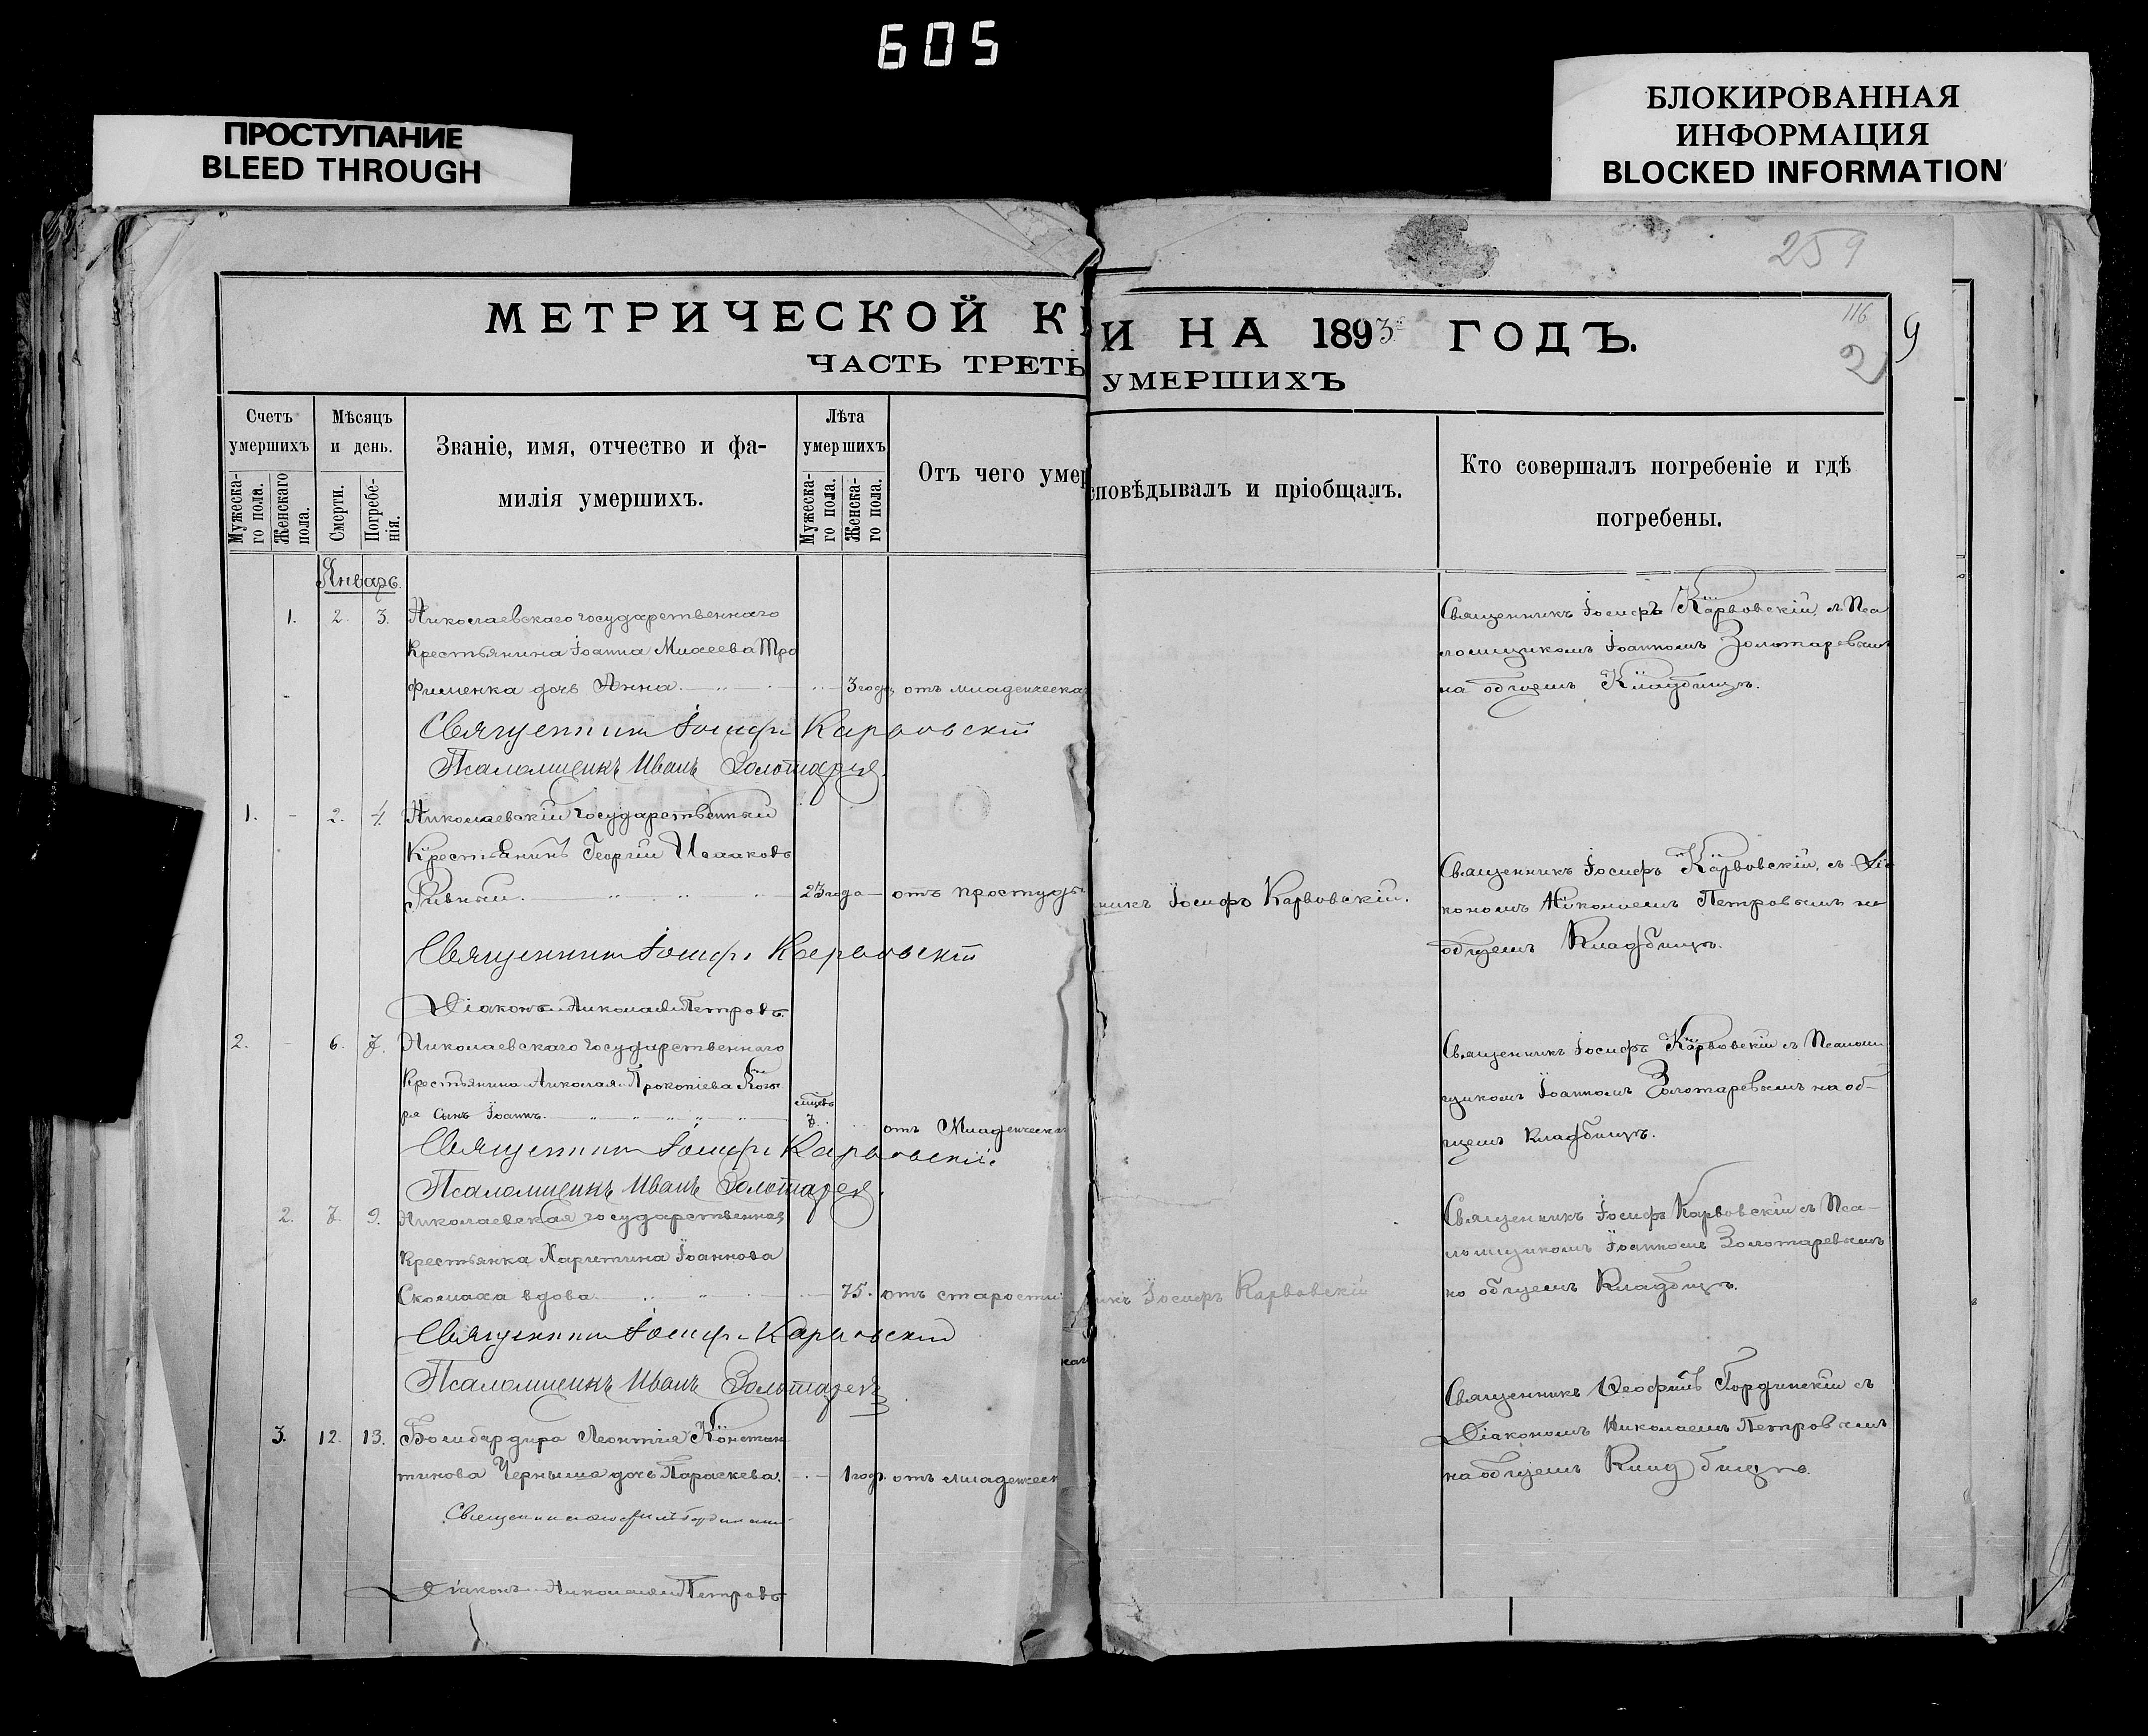 605
ПРОСТУПАНИЕ
BLEED THROUGH
БЛОКИРОВАННАЯ
ИНФОРМАЦИЯ
BLOCKED INFORMATION
259
116
9
2
МЕТРИЧЕСКОЙ К
ЧАСТЬ ТРЕТЬ
Счетъ умершихъ
Мужеска-го пола.
Женскаго пола.
Мѣсяцъ и день.
Смерти.
Погребе-нія.
Званіе, имя, отчество и фа-
милія умершихъ.
Лѣта умершихъ
Мужеска-го пола.
Женска-го пола.
Отъ чего умер
Январь.
1. 2. 3. Николаевскаго государственнаго
Крестьянина Іоанна Михеева Тро
фименка дочь Анна. 3 года отъ младенческа
Священникъ Іосифъ Карвовскій
Псаломщикъ Иванъ Золотарев
1. 2. 4. Николаевскій государственный
Крестьянинъ Георгій Исааковъ
Ривный. 23 года отъ простуды
Священникъ Іосифъ Карвовскій
Діаконъ Николай Петровъ.
2. 6. 7. Николаевскаго государственнаго
Крестьянина Николая Прокопіева
ря сынъ Іоаннъ. 7. отъ Младенчески
Священникъ Іосифъ Карвовскій
Псаломщикъ Иванъ Золотарев
2. 7. 9. Николаевская государственная
Крестьянка Харитина Іоаннова
вдова. 75. отъ старости
Священникъ Іосифъ Карвовскій
Псаломщикъ Иванъ Золотарев
3. 12. 13. Бомбардира Леонтія Констан
тинова Черныша дочь Параскева. 1 год. отъ младенческ
Священникъ
Діаконъ Николай Петровъ
И НА 1893 ГОДЪ.
УМЕРШИХЪ
споведывалъ и пріобщалъ.
Кто совершалъ погребеніе и гдѣ
погребены.
Священникъ Іосифъ Карвовскій, съ Пса
ломщикомъ Іоанномъ Золотаревымъ
на общемъ Кладбищѣ.
никъ Іосифъ Карвовскій.
Священникъ Іосифъ Карвовскій, съ Діа
кономъ Николаемъ Петровымъ на
общемъ Кладбищѣ.
Священникъ Іосифъ Карвовскій съ Псалом
щикомъ Іоанномъ Золотаревымъ на об-
щемъ кладбищѣ.
икъ Іосифъ Карвовскій
Священникъ Іосифъ Карвовскій съ Пса-
ломщикомъ Іоанномъ Золотаревымъ
на общемъ Кладбищѣ.
Священникъ Ѳеофилъ Гординскій съ
Діакономъ Николаемъ Петровымъ
на общемъ Кладбищѣ.